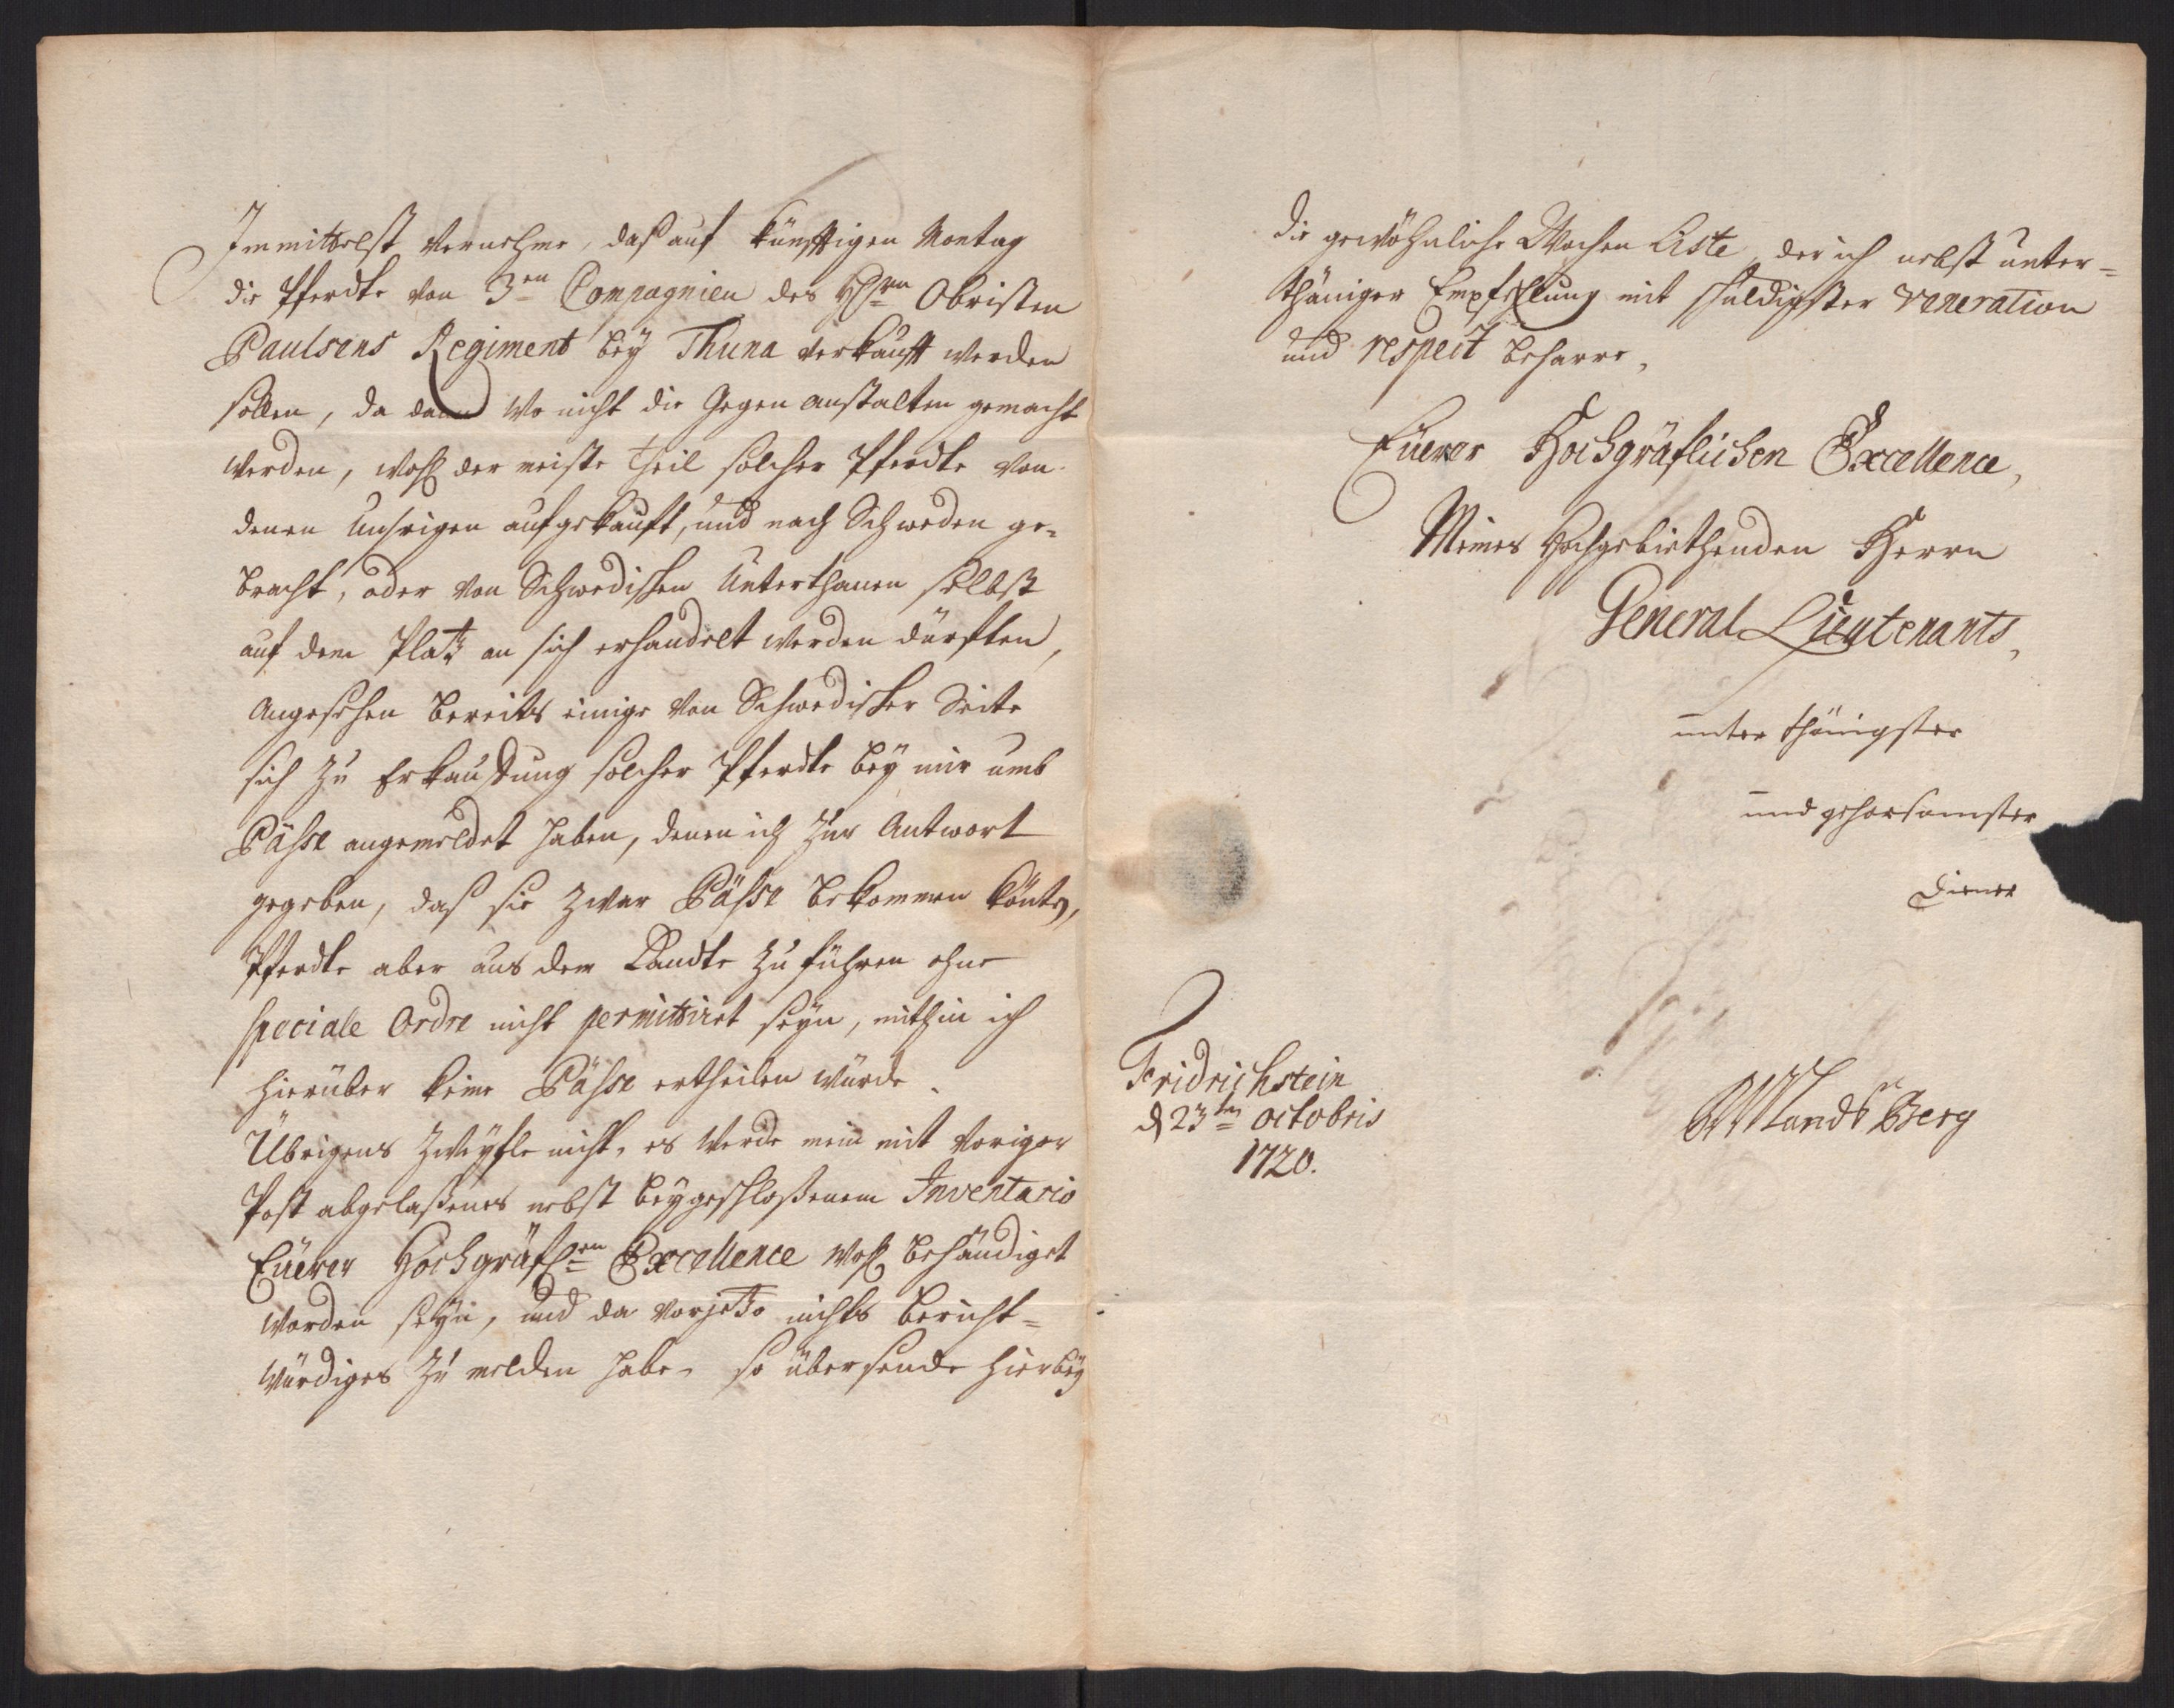 Immittelst vernehme, daß auf künfftigen Montag
die Pferdte von 3en Compagnien des HErrn Obristen
Paulsens Regiment bey Thuna verkaufft werden
sollen, da dann wo nicht die Gegen anstalten gemacht
werden, wohl der meiste theil solcher Pferdte von
denen Unsrigen aufgekaufft, und nach Schweden ge-
bracht, oder von Schwedischen Unterthanen selbst
auf dem Platz an sich erhandelt werden dürfften,
Angesehen bereits einige von Schwedischer Seite
sich zu Erkauffung solcher Pferdte bey mir umb
Päße angemeldet haben, denen ich zur Antwort
gegeben, daß sie zwar Päße bekommen könten,
Pferdte aber aus dem Landte zu führen ohne
speciale Ordre nicht permittiret seyn, mithin ich
hierüber keine Päße ertheilen würde.
Übrigens zweyfle nicht, es werde mein mit voriger
Post abgelaßenes nebst beygeschloßenem Inventario
Eüerer Hochgräflen Excellence wohl behändiget
worden seyn, und da vorjetzo nichts bericht=
würdiges zu melden habe, so übersende hierbey
die gewöhnliche Wochen Liste, der ich nebst unter=
thäniger Empfehlung mit schuldigster veneration
und respect beharre,
Eüerer Hochgräflichen Excellence,
Meines Hochgebiethenden Herrn
General Lieutenants,
unterthänigster
und gehorsamster
Diener
Fridrichstein
d 23ten octobris
1720.
Landsberg